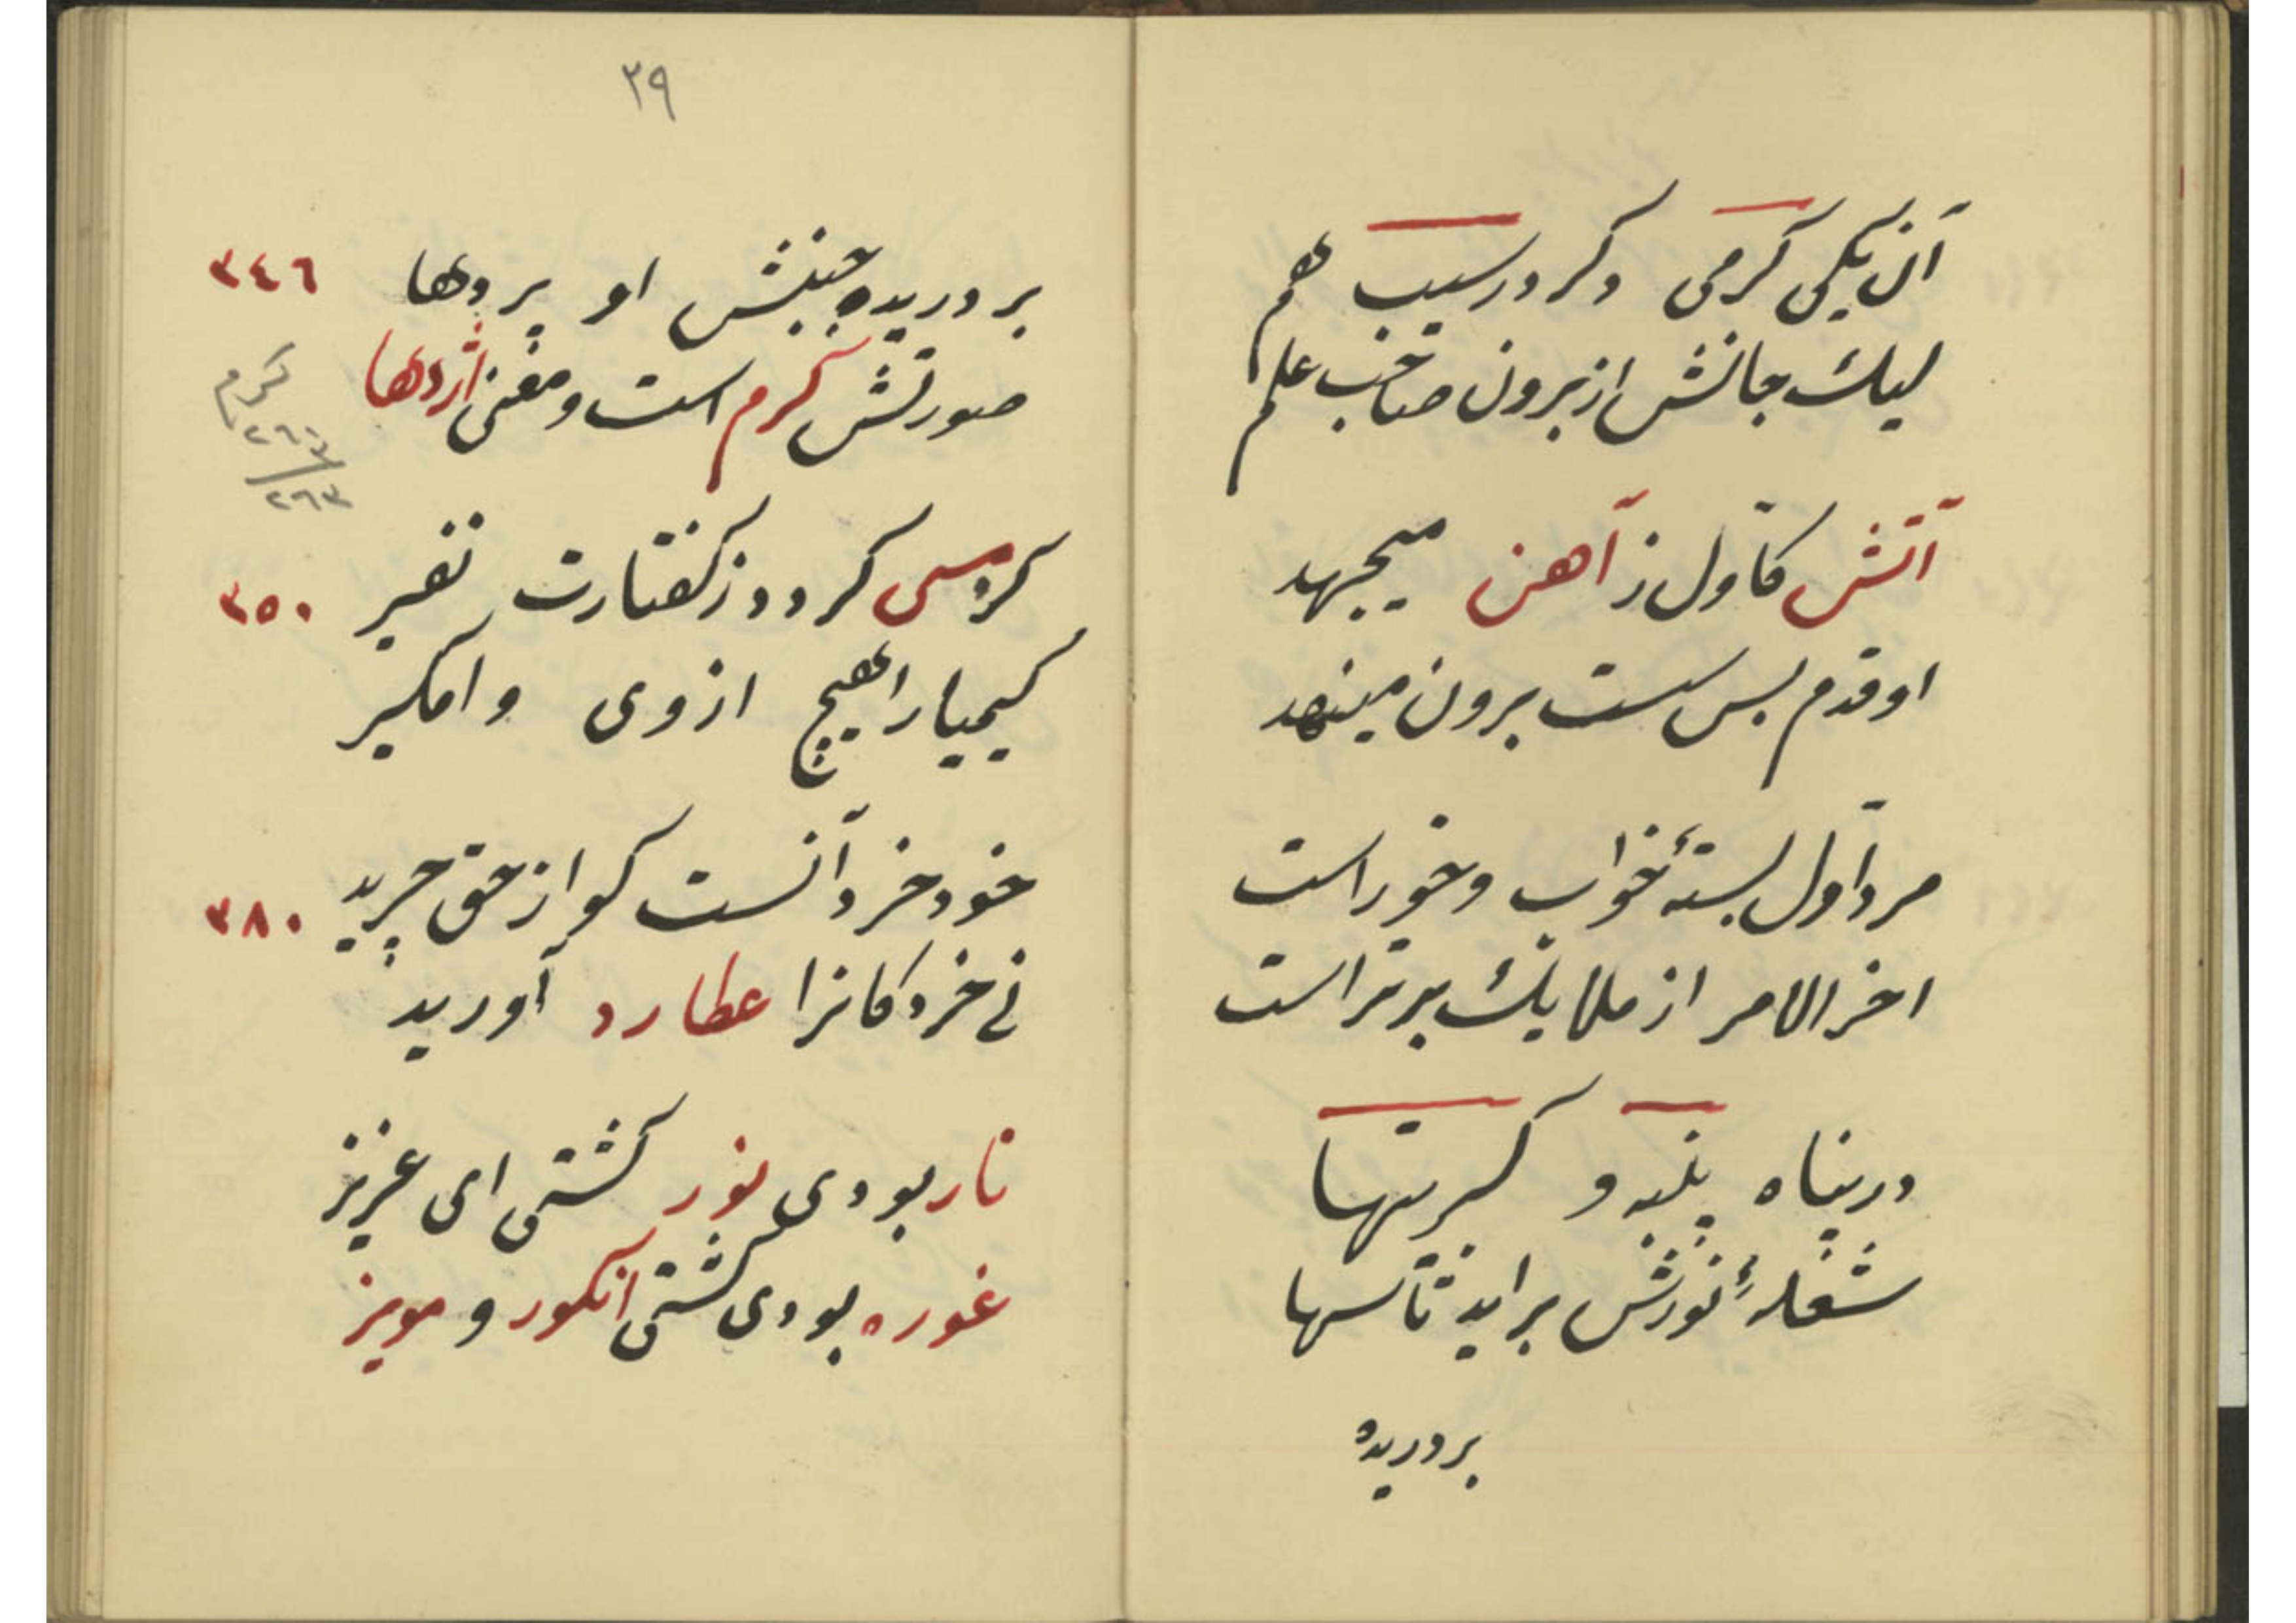 آن یکی کرمی دکر در سیب هم
لیک جانش از برون صاحب علم
آتش کاول ز آهن میجهد
او قدم بس سست برون مینهد
مرد اول بستۀ خواب و خوراست
اخر الامر از ملایک برتر است
در پناه پنبه و کبریتها
شعلۀ نورش براید تا سها
بر دریده
٣٩
بر دریده جنبش او پردها ٣٤٦
صورتش کرم است و معنی اژدها
کرم
٢٦٣
کر مسی کردد ز کفتارت نفیر ٣٥٠
کیمیا را هیچ از وی وامکیر
خود خرد آنست کو از حق چرید ٣٨٠
نی خرد کانرا عطارد آورید
نار بودی نور کشتی ای عزیز
غوره بودی کشتی انکور و مویز